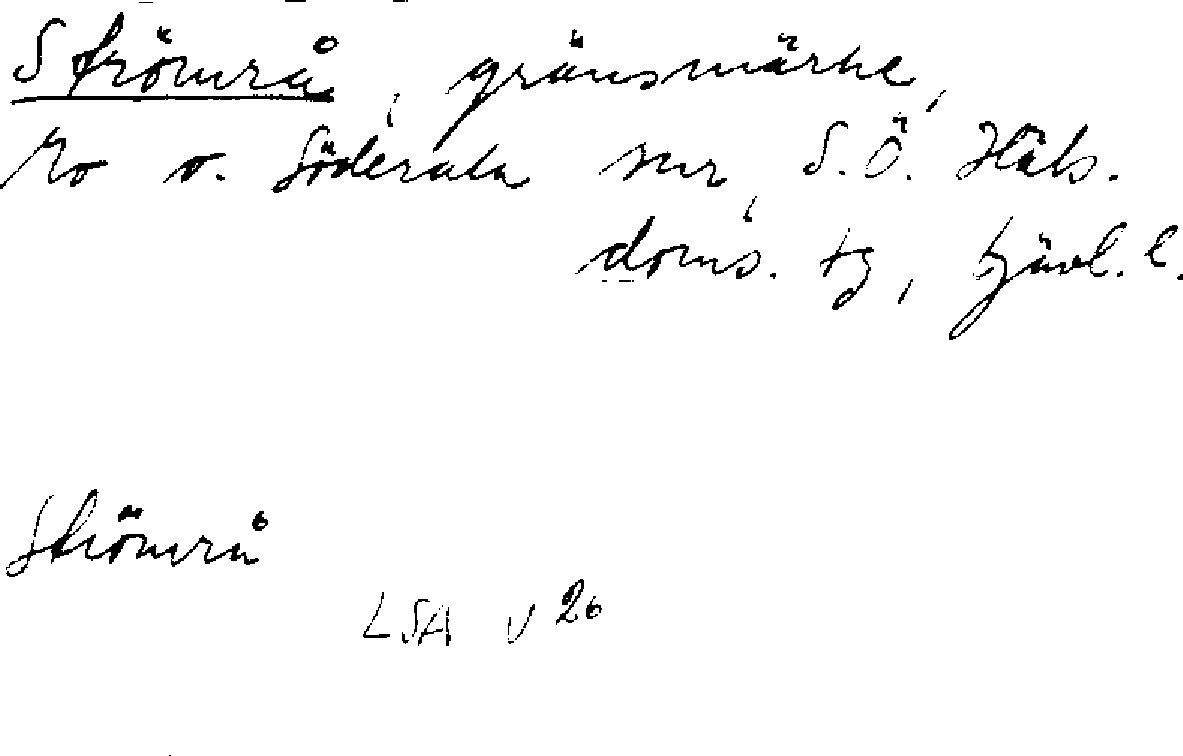 Strömrå, gränsmärke,
Mo o. Söderala snr, S.Ö. Häls.
doms. tg, Gävl. l.
Strömrå
LSA V 26